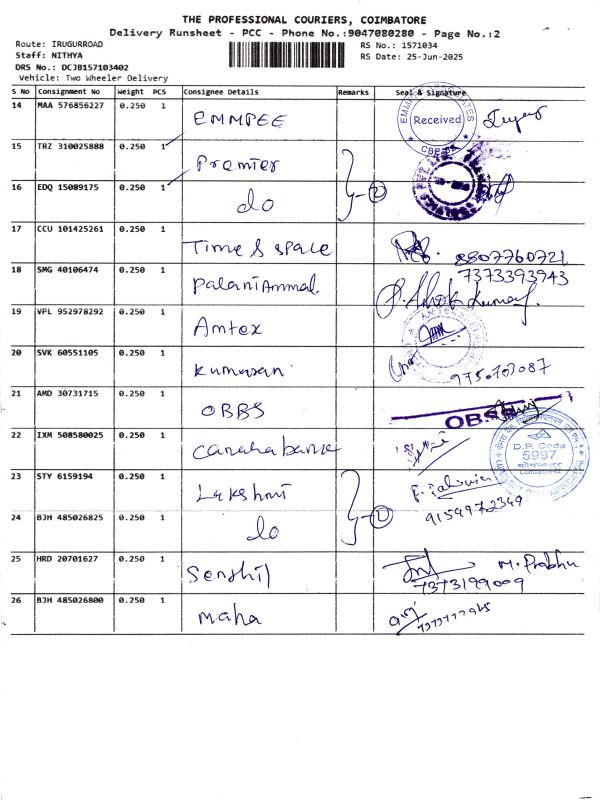 THE PROFESSIONAL COURIERS, COIMBATORE
Delivery Runsheet - PCC - Phone No.:9047080280 - Page No.:2
Route: IRUGURROAD
Staff: NITHYA
DRS No.: DCJB157103402
Vehicle: Two Wheeler Delivery
RS No.: 1571034
RS Date: 25-Jun-2025
S No Consignment No Weight PCS Consignee Details Remarks Seal & Signature
14 MAA 576856227 0.250 1 EMMPEE Received
15 TRZ 310025888 0.250 1 Premier
16 EDQ 15089175 0.250 1 do 2
17 CCU 101425261 0.250 1 Time & space 8807760721
18 SMG 40106474 0.250 1 Palani Ammal 7373393943
P. Ashok Kumar
19 VPL 952978292 0.250 1 Amtex
20 SVK 60551105 0.250 1 Kumaran 9750703087
21 AMD 30731715 0.250 1 OBBS
22 IXM 508580025 0.250 1 Canara bank D.P. Code 5997
23 STY 6159194 0.250 1 Lakshmi
24 BJH 485026825 0.250 1 do 2 9159972349
25 HRD 20701627 0.250 1 Senthil M. Prabhu
7373199009
26 BJH 485026800 0.250 1 Maha